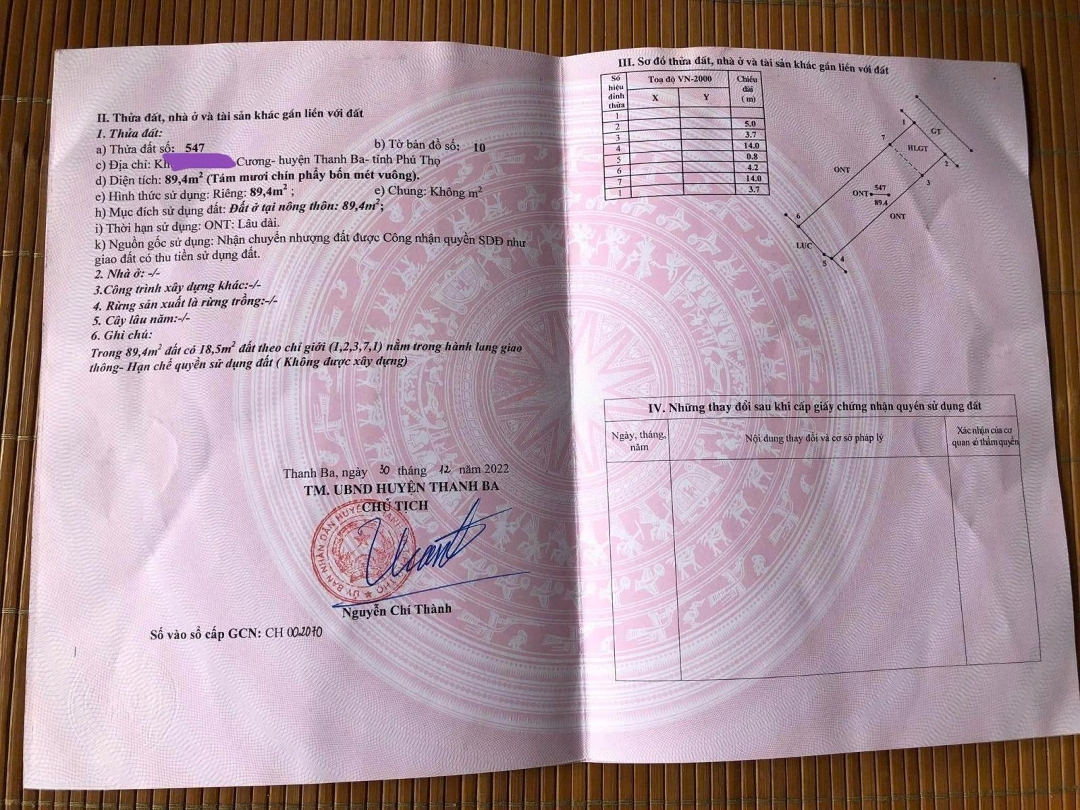 II. Thửa đất, nhà ở và tài sản khác gắn liền với đất
1. Thửa đất:
a) Thửa đất số: 547 b) Tờ bản đồ số: 10
c) Địa chỉ: Kh Cương- huyện Thanh Ba- tỉnh Phú Thọ
d) Diện tích: 89,4m² (Tám mươi chín phẩy bốn mét vuông).
e) Hình thức sử dụng: Riêng: 89,4m² ; e) Chung: Không m²
h) Mục đích sử dụng đất: Đất ở tại nông thôn: 89,4m²;
i) Thời hạn sử dụng: ONT: Lâu dài.
k) Nguồn gốc sử dụng: Nhận chuyển nhượng đất được Công nhận quyền SDĐ như
giao đất có thu tiền sử dụng đất.
2. Nhà ở: -/-
3.Công trình xây dựng khác:-/-
4. Rừng sản xuất là rừng trồng:-/-
5. Cây lâu năm:-/-
6. Ghi chú:
Trong 89,4m² đất có 18,5m² đất theo chỉ giới (1,2,3,7,1) nằm trong hành lang giao
thông- Hạn chế quyền sử dụng đất ( Không được xây dựng)
Thanh Ba, ngày 30 tháng 12 năm 2022
TM. UBND HUYỆN THANH BA
CHỦ TỊCH
Nguyễn Chí Thành
Số vào sổ cấp GCN: CH 002070
III. Sơ đồ thửa đất, nhà ở và tài sản khác gắn liền với đất
Số hiệu đỉnh thửa Toạ độ VN-2000 Chiều dài (m)
X Y
1
2 5.0
3 3.7
4 14.0
5 0.8
6 4.2
7 14.0
1 3.7
1 GT
7 HLGT 2
ONT 3
547
ONT
89.4
6 ONT
LUC
5 4
IV. Những thay đổi sau khi cấp giấy chứng nhận quyền sử dụng đất
Ngày, tháng, năm Nội dung thay đổi và cơ sở pháp lý Xác nhận của cơ quan có thẩm quyền